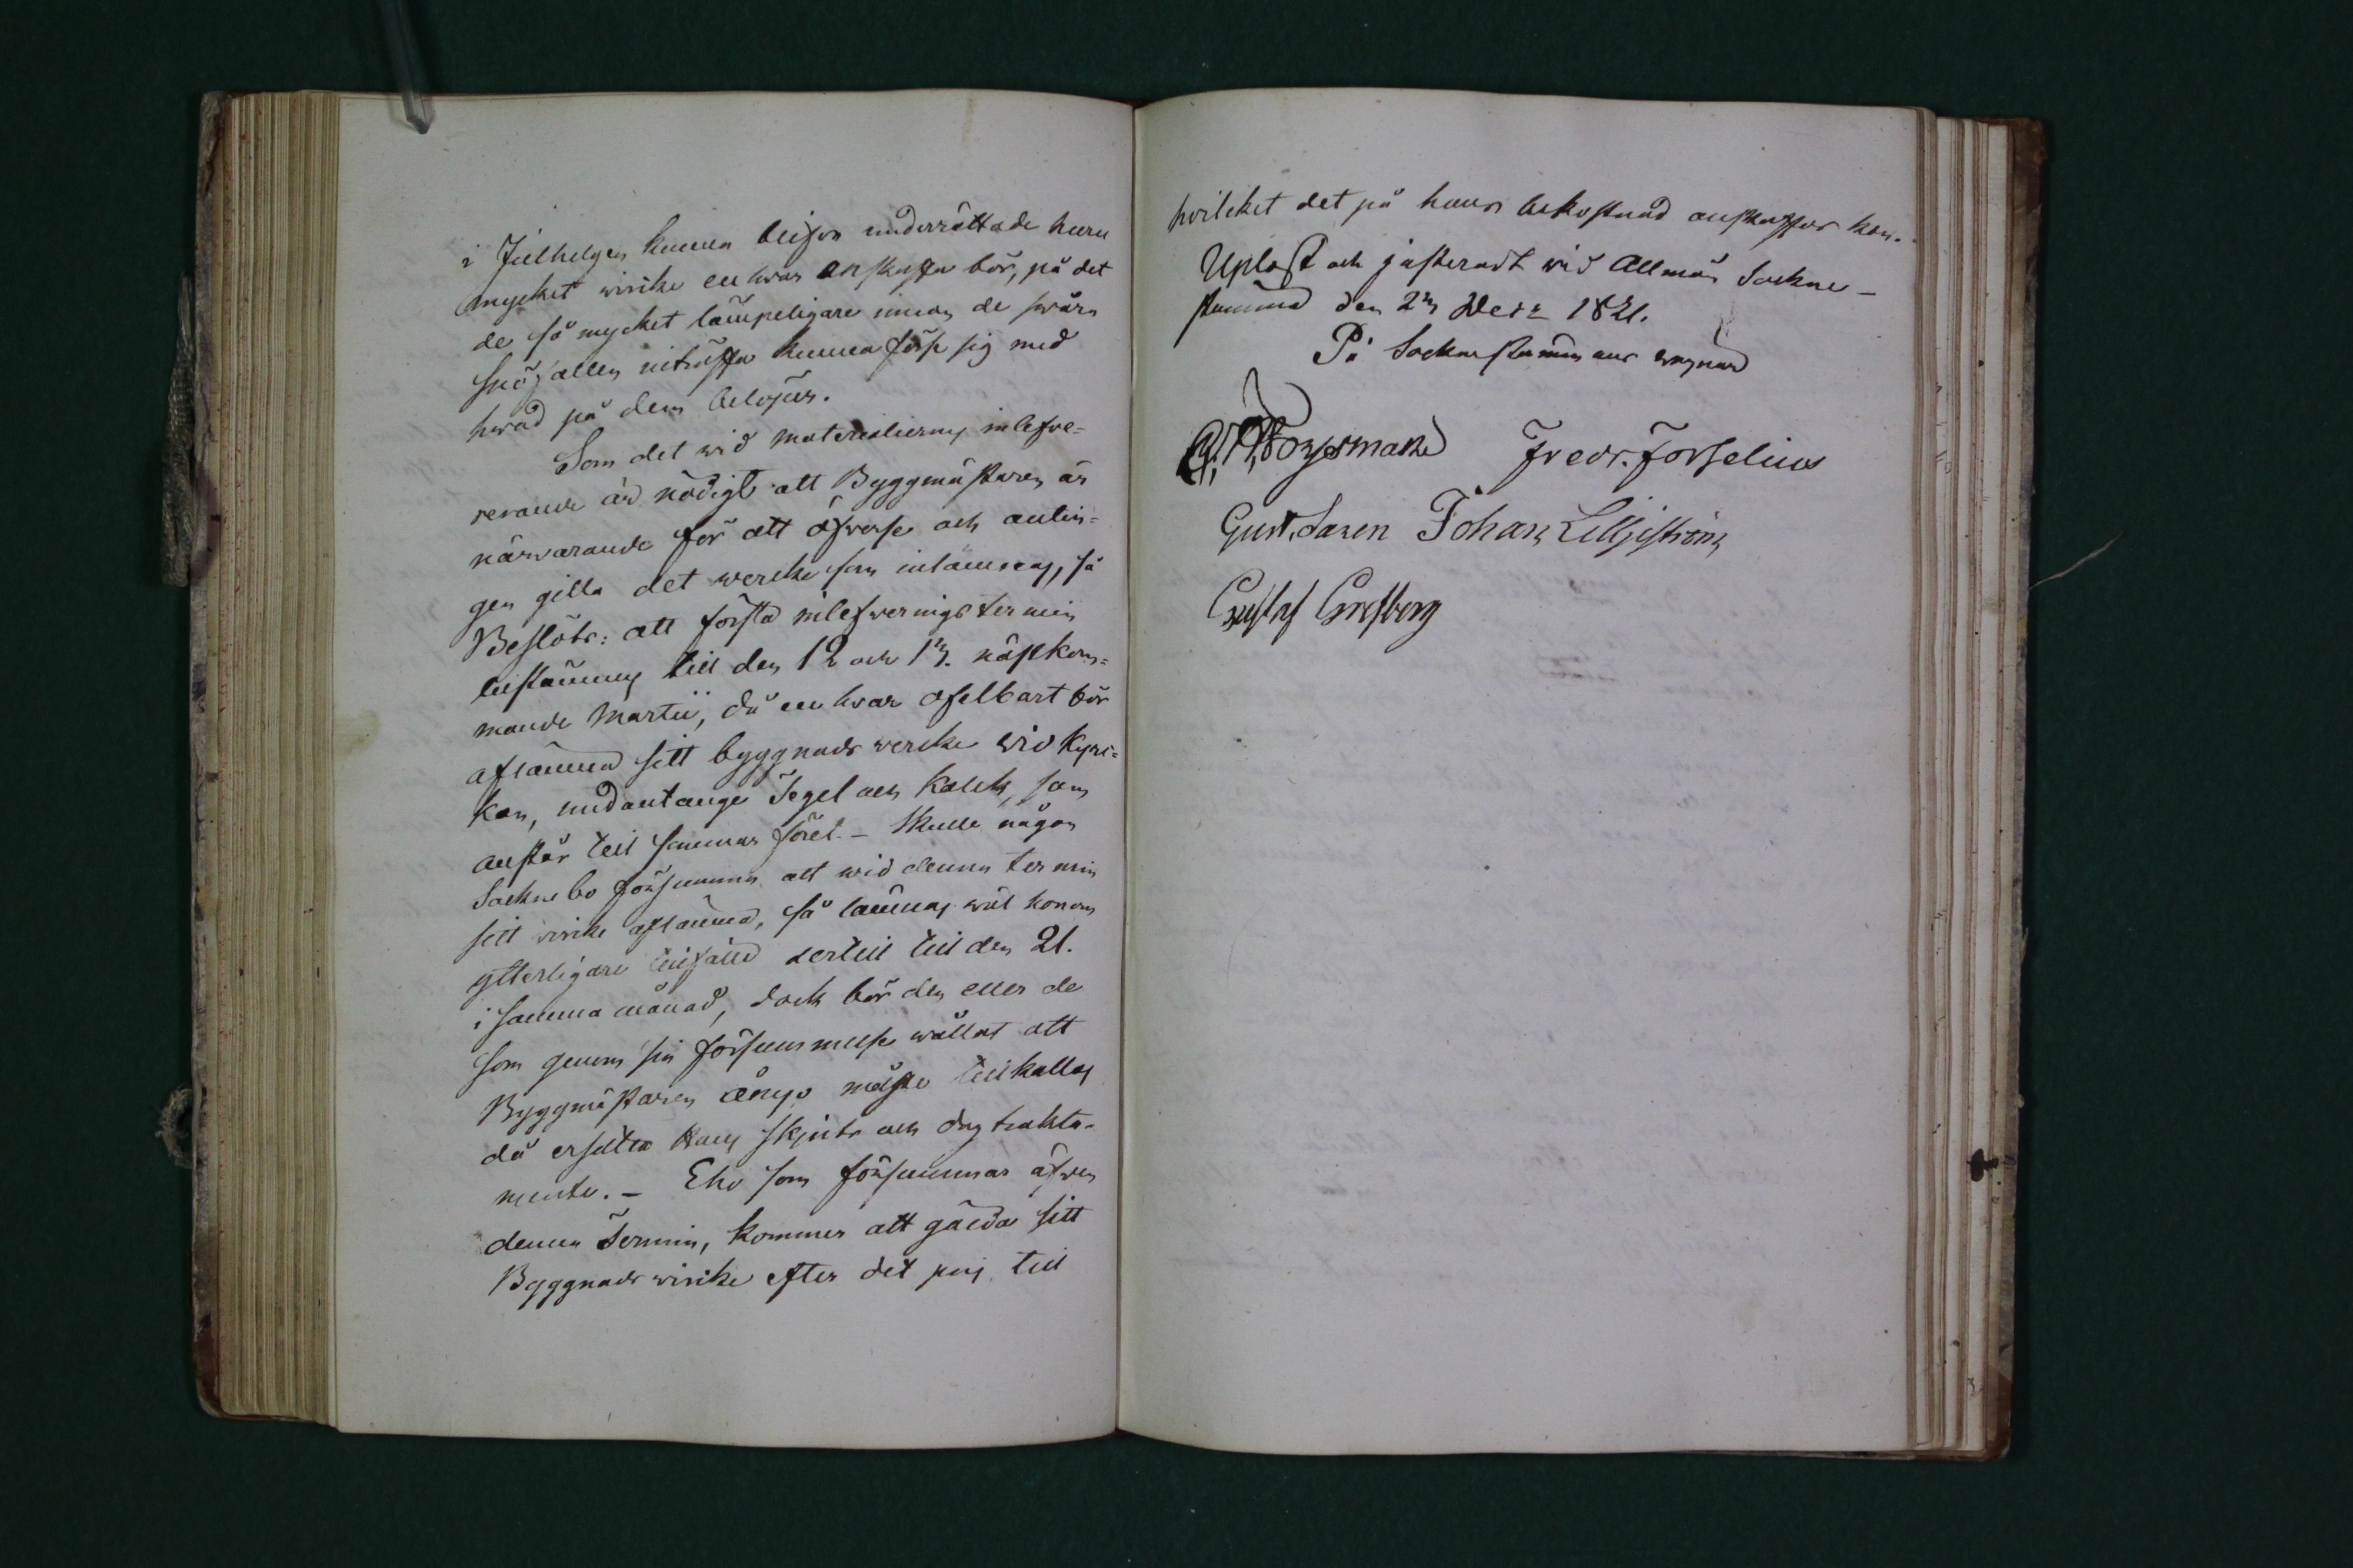 i Julhelgen kunna blifva underrättade huru
mycket wirke en hvar anskaffa bör, på det
de så mycket lämpeligare innan de svåra
snöfallen inträffa kunna förse sig med
hvad på dem belöper.
Som det wid materialiernes inlefve-
rerande är nödigt att Byggmästaren är
närvarande för att öfverse och antin-
gen gilla det wercke som inlämnas, så
Beslöts: att första inlefvernings termin
bestämmes till den 12 och 13. nästkom-
mande Martii, då en hvar ofelbart bör
aflämna sitt byggnads wercke wid Kyrc-
kan, undantange Tegel och Kalck, som
anstår till sommar föret. – Skulle någon
Socknebo försumma att wid denna termin
sitt wirke aflämna, så lämnas wäl honom
ytterligare tillfälle dertill till den 21.
i samma månad, dock bör den eller de
som genom sin försummelse wållat att
Byggmästaren ånyo måste tillkallas
då ersätta Hans skjuts och dagtrakta-
mente. – Eho som försummar äfven
denna Termin, kommer att gälda sitt
Byggnads wirke efter det pris till
hvilcket det på hans bekostnad anskaffas kan.
Upläst och justeradt wid Allmän Sockne-
stämma den 23 Decr 1821.
På Sockne stämmans wägnar
Forssman Fredr. Forselius
Gust. Johan Lilljeström
Gustaf